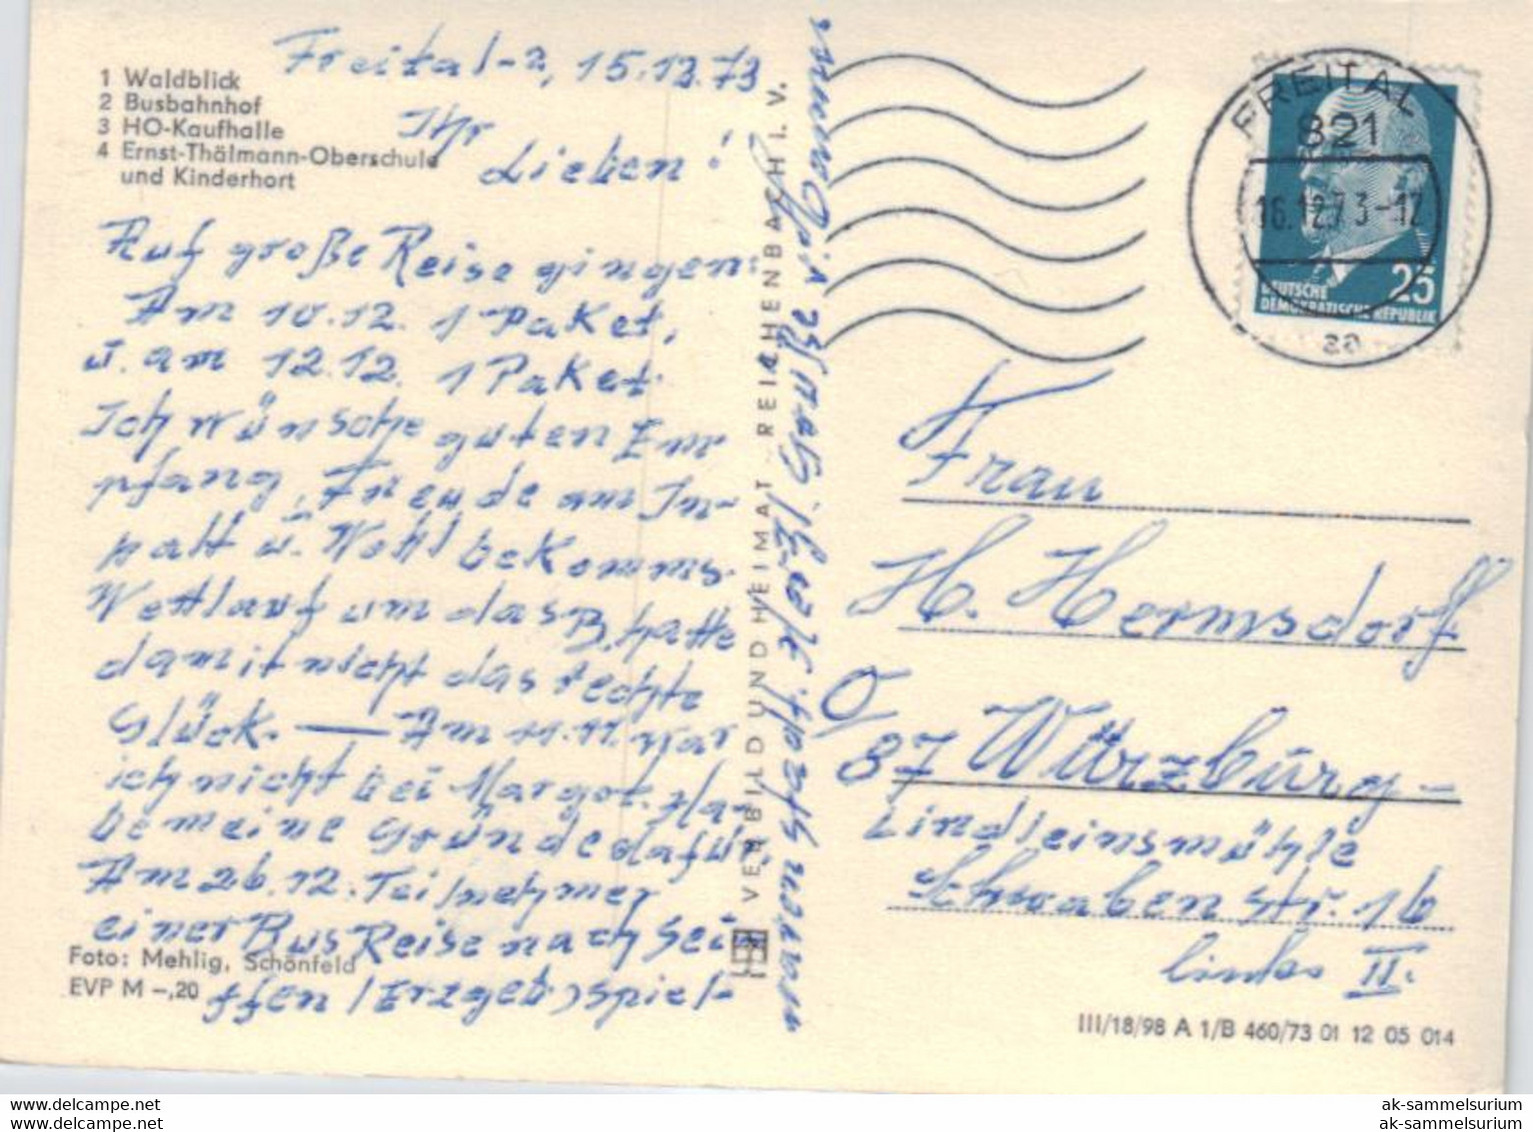 1 Waldblick
2 Busbahnhof
3 HO-Kaufhalle
4 Ernst-Thälmann-Oberschule
und Kinderhort
Freital-2, 15.12.73
Ihr
Lieben!
Auf große Reise gingen:
Am 10.12. 1 Paket,
u. am 12.12. 1 Paket.
Ich wünsche guten Em
pfang, Freude am In-
halt u. Wohl bekomms.
Wettlauf um das B. hatte
damit nicht das rechte
Glück. — Am 11.11. war
ich nicht bei Margot. Ha-
be meine Gründe dafür.
Am 26.12. Teilnehmer
einer BusReise nach Sei
ffen (Erzgeb) spiel-
Foto: Mehlig, Schönfeld
EVP M -,20
VERBILD UND HEIMAT REICHENBACH I. V.
FREITAL
821
16.12.73-12
aa
25
DEUTSCHE
DEMOKRATISCHE REPUBLIK
Frau
H. Hermsdorf
87 Würzburg-
Lindleinsmühle
Schwabenstr. 16
links II.
III/18/98 A 1/B 460/73 01 12 05 014
www.delcampe.net
www.delcampe.net
ak-sammelsurium
ak-sammelsurium